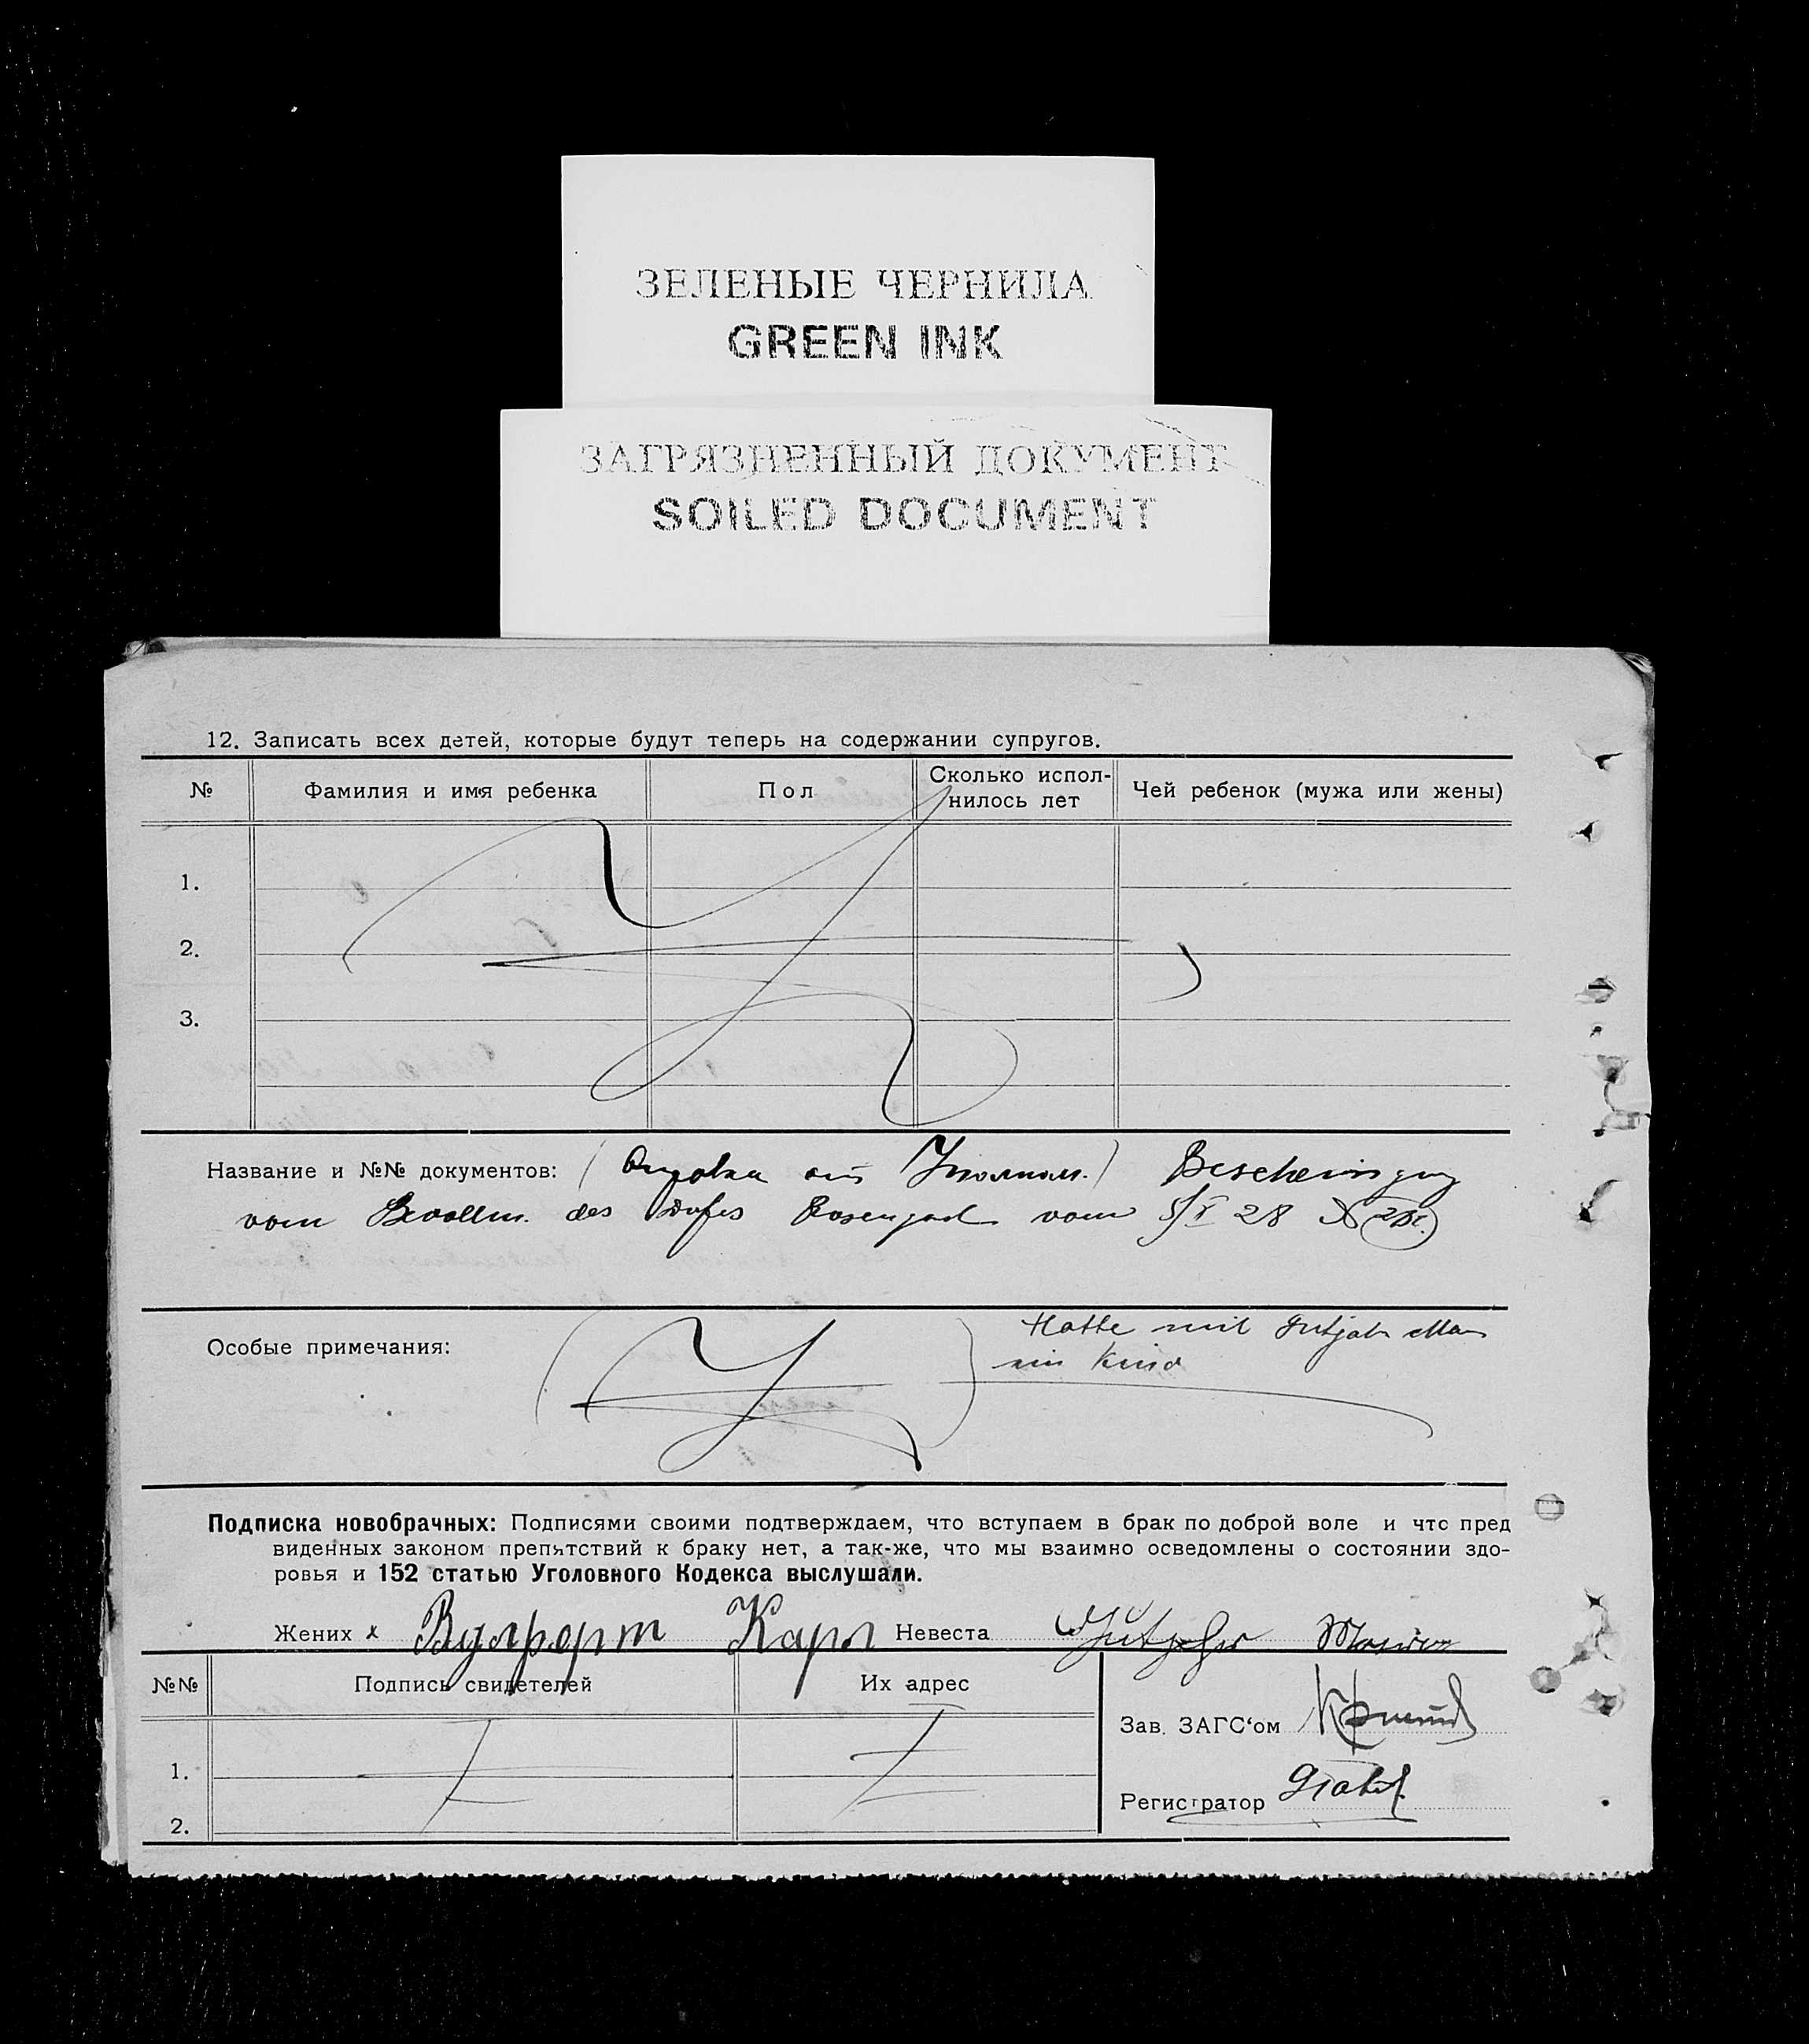 ЗЕЛЕНЫЕ ЧЕРНИЛА
GREEN INK
ЗАГРЯЗНЕННЫЙ ДОКУМЕНТ
SOILED DOCUMENT
12. Записать всех детей, которые будут теперь на содержании супругов.
№ Фамилия и имя ребенка Пол Сколько испол-нилось лет Чей ребенок (мужа или жены)
1.
2.
3.
Название и №№ документов: ( от Уполном.) Bescheinigung
vom Bevollm. des Dorfes Rosengart vom 28 №
Особые примечания: Hatte mit
ein Kind
Подписка новобрачных: Подписями своими подтверждаем, что вступаем в брак по доброй воле и что пред
виденных законом препятствий к браку нет, а так-же, что мы взаимно осведомлены о состоянии здо-
ровья и 152 статью Уголовного Кодекса выслушали.
Жених х Вулферт Карл Невеста
№№ Подпись свидетелей Их адрес
Зав. ЗАГС'ом
1.
Регистратор
2.